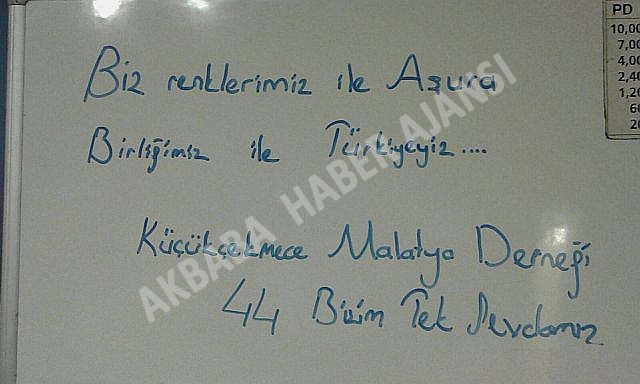 Biz renklerimiz ile Aşura
Birliğimiz ile Türkiyeyiz....
Küçükçekmece Malatya Derneği
44 Bizim Tek Sevdamız
AKBABA HABER AJANSI
PD
10,00
7,00
4,00
2,40
1,20
60
20